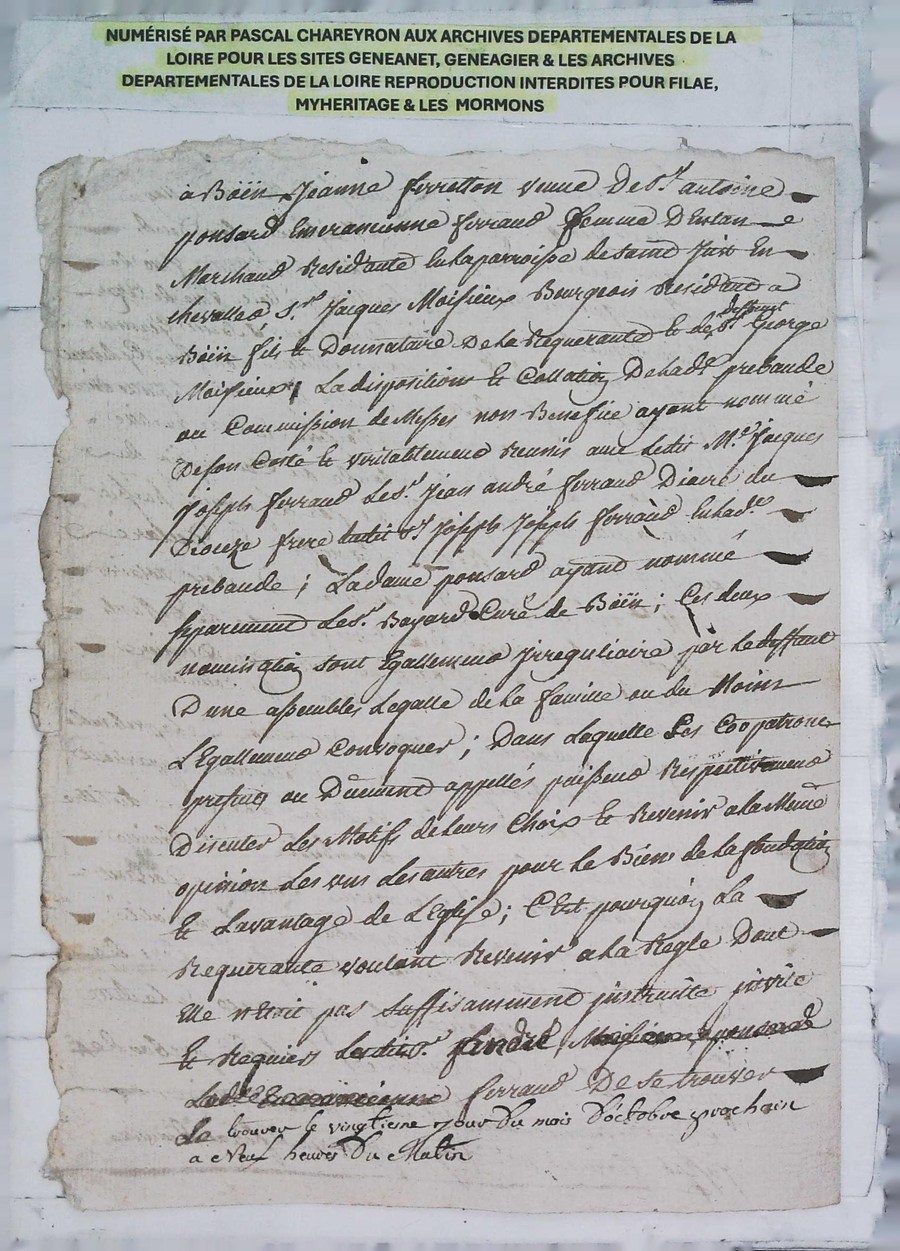 NUMÉRISÉ PAR PASCAL CHAREYRON AUX ARCHIVES DEPARTEMENTALES DE LA
LOIRE POUR LES SITES GENEANET, GENEAGIER & LES ARCHIVES
DEPARTEMENTALES DE LA LOIRE REPRODUCTION INTERDITES POUR FILAE,
MYHERITAGE & LES MORMONS
à Böën Jéanne ferretton veuve De Sr. antoine
ponsard ferraud femme
Marchand Residante En la parroisse de saint Jux En
chevalleó, Sr. Jacques Moissieux Bourgeois Residant a
Böën fils & Donnataire De la Requerante & de deffunt Sr. George
Moissieux; La disposition & Collation De lad. prebande
ou Commission de Messes non Benefice ayant nommé
De son Costé & veritablement Reunis avec Ledit Mre. Jacques
joseph ferraud Le Sr. Jean andré ferraud Diacre du
Dioceze frere dudit Sr. joseph joseph ferraud En lad.
prebande; La dame ponsard ayant nommé
separement Le Sr. Bayard Curé de Böën; Ces deux
nomination sont Egallement jrregulliaire par Le deffaut
D'une assemblée Legalle de la famille ou du Moins
LEgallement Convoquer; Dans Laquelle Les Coopatrones
presents ou Dûement appellés puissent Respectivement
Discuter Les Motifs de leurs Choix & Revenir a la Même
opinion Les uns Les autres pour Le Bien de la fondation
& Lavantage de LEglise; C'Est pourquoy La
Requerante voulant Revenir a la Regle Dont
Elle n'Etoit pas suffisamment jnstruitte jnvite
& Requiert Ledit Sr. André
Lad. ferraud De se trouver
De trouver le vingtieme jour Du mois D'octobre prochain
a Neuf heures Du Matin